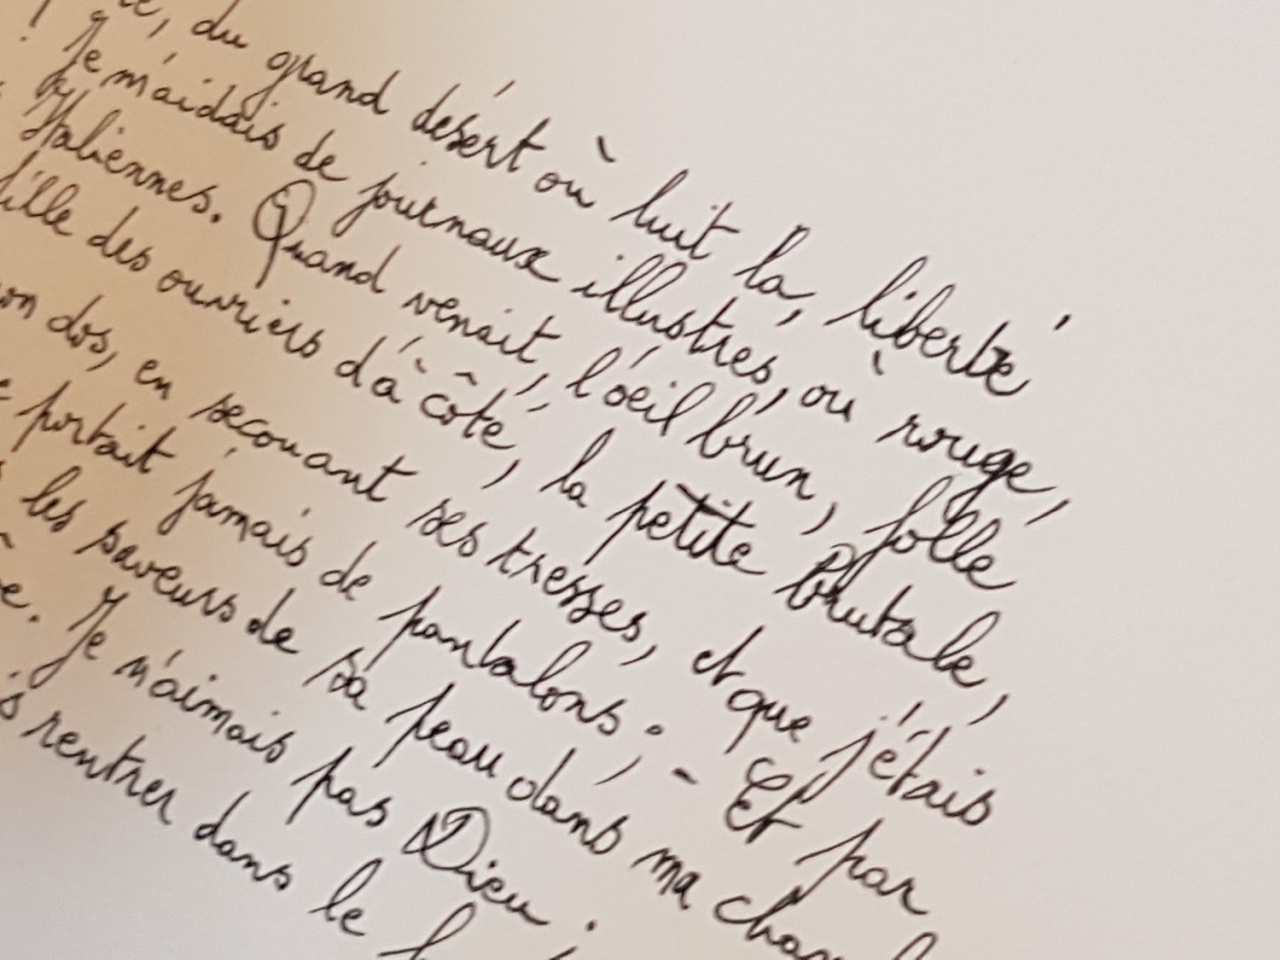 du grand désert où luit la, liberté
! Je m'aidais de journaux illustrés, où rouge,
Italiennes. Quand venait, l'oeil brun, folle
fille des ouvriers d'à côté, la petite brutale,
dos, en secouant ses tresses, et que j'étais
portait jamais de pantalons ; - Et par
les saveurs de sa peau dans ma
Je n'aimais pas Dieu ;
rentrer dans le